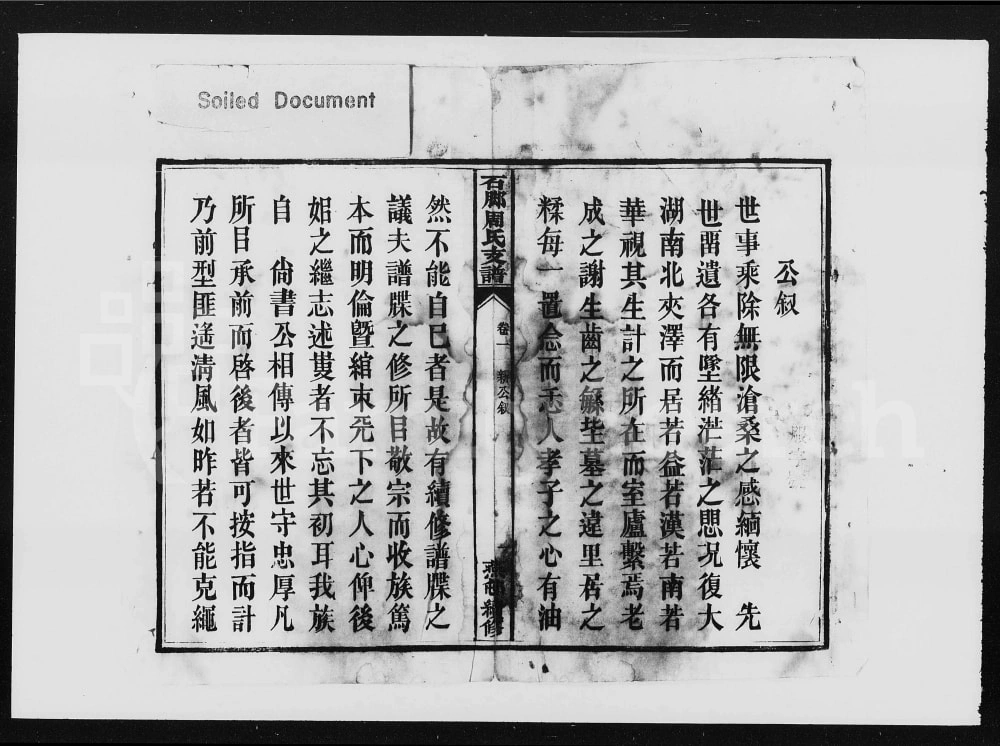 Soiled Document
公叙
世事乘除無限滄桑之感緬懷 先
世畱遺各有墜緒茫茫之思况復大
湖南北夾澤而居若益若漢若南若
華視其生計之所在而室廬繫焉老
成之謝生齒之繇墓之違里居之
糅每一置念而人孝子之心有油
石廊周氏支譜
卷一
公叙
續修
然不能自已者是故有續修譜牒之
議夫譜牒之修所目敬宗而收族篤
本而明倫曁綰束兂下之人心俾後
之繼志述者不忘其初耳我族
自 尙書公相傳以來世守忠厚凡
所目承前而啓後者皆可按指而計
乃前型匪遥淸風如昨若不能克繩